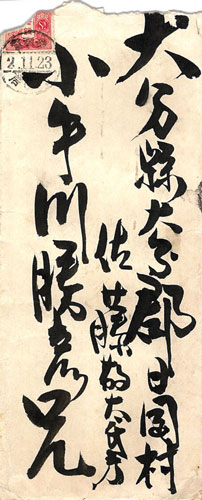 大分縣大分郡日岡村
佐藤太氏方
小手川勝彦兄
2.11.23